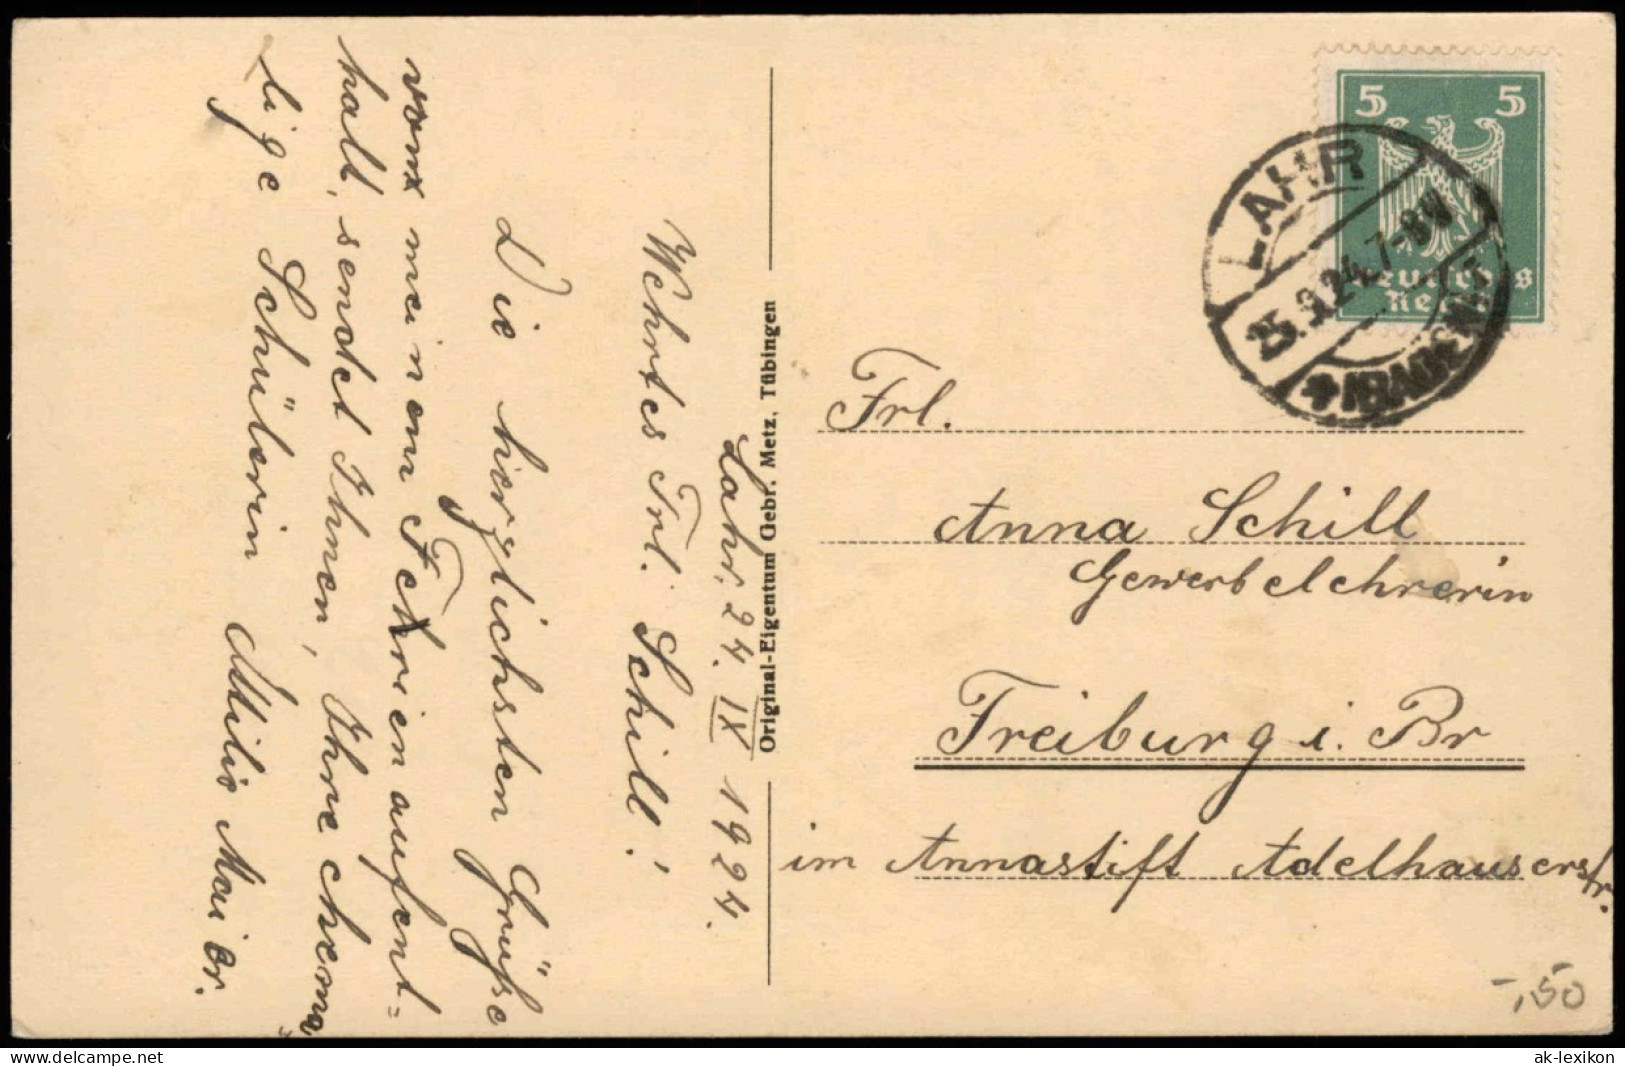 Lahr, 24. IX 1924.
Wehrtes Frl. Schill!
Die herzlichsten Grüße
vom meinem Fehrienaufent-
halt, sendet Ihnen, Ihre ehema-
lige Schülerin Milio Maier.
Original-Eigentum Gebr. Metz, Tübingen
5 5
Deutsches
Reich
LAHR
25.9.24.7-8N
(BADEN)
Frl.
Anna Schill
Gewerbelehrerin
Freiburg i. Br
im Annastift Adelhauserstr.
-,50
delcampe.net
ak-lexikon